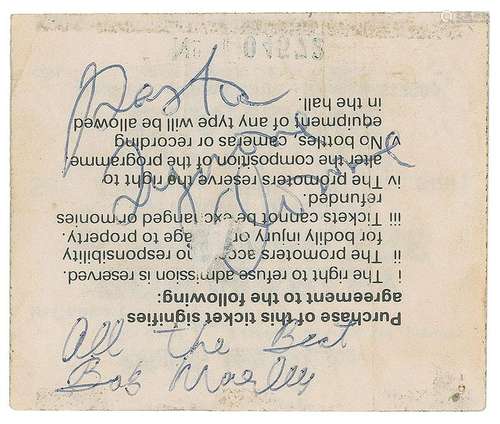 Rasta
All the Best
Bob Marley
Purchase of this ticket signifies
agreement to the following:
i The right to refuse admission is reserved.
ii The promoters accept no responsibility
for bodily injury or damage to property.
iii Tickets cannot be exchanged or monies
refunded.
iv The promoters reserve the right to
alter the composition of the programme.
v No bottles, cameras or recording
equipment of any type will be allowed
in the hall.